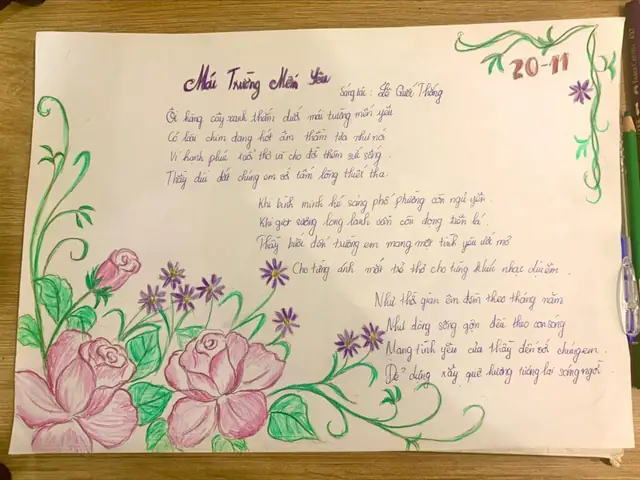 Mái Trường Mến Yêu
20-11
Sáng tác: Lê Quốc Thắng
Ôi hàng cây xanh thắm dưới mái trường mến yêu
Có loài chim đang hót âm thầm tựa như nói
Vì hạnh phúc tuổi thơ vì cho đời thêm sức sống.
Thầy dìu dắt chúng em với tấm lòng thiết tha.
Khi bình minh hé sáng phố phường còn ngủ yên.
Khi giọt sương long lanh vẫn còn đọng trên lá.
Thầy bước đến trường em mang một tình yêu ước mơ
Cho từng ánh mắt trẻ thơ cho từng khúc nhạc dịu êm.
Như thời gian êm đềm theo tháng năm
Như dòng sông gợn đều theo cơn sóng
Mang tình yêu của thầy đến với chúng em.
Để dựng xây quê hương tương lai sáng ngời.